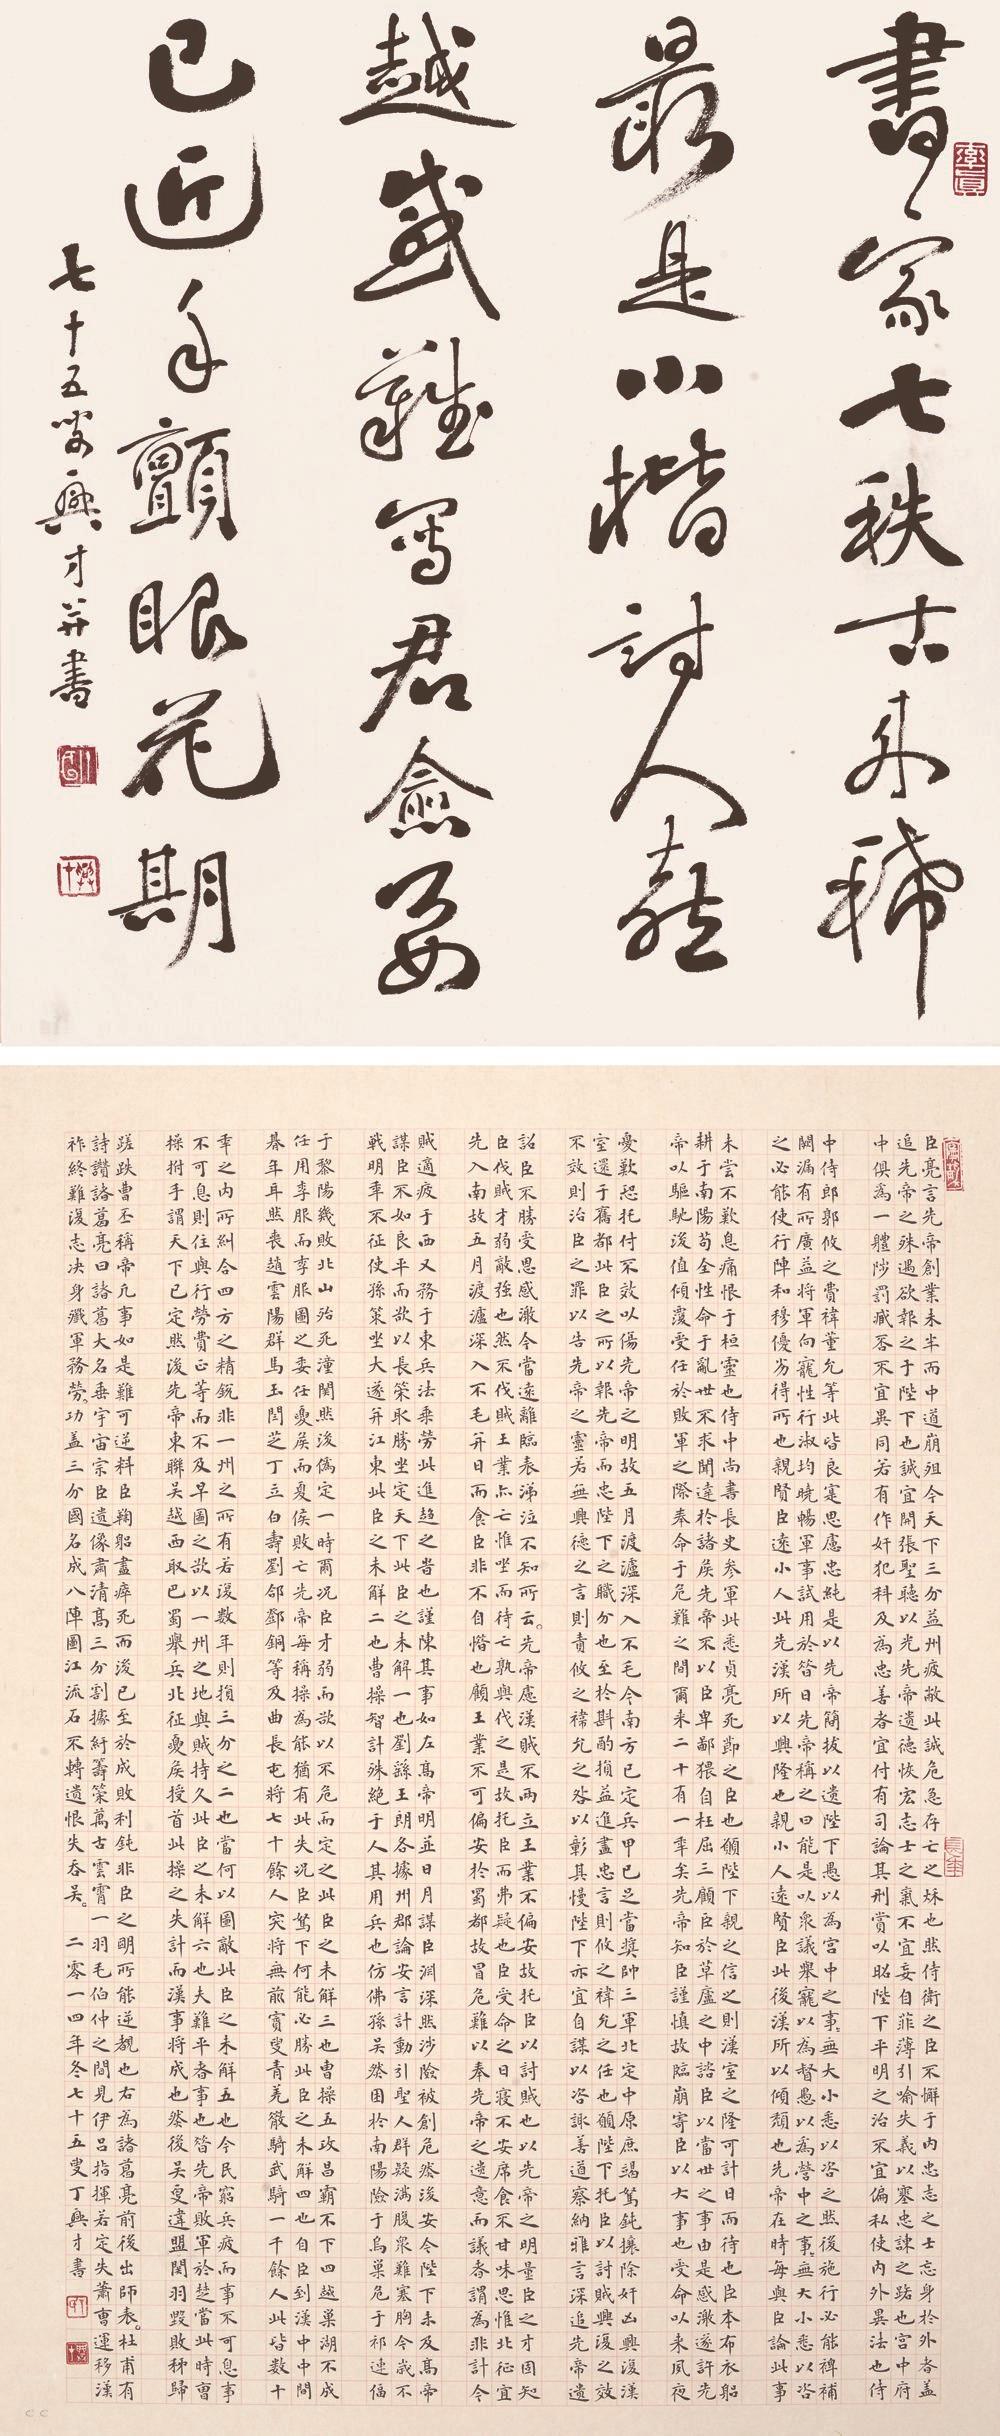 書家七秩古来稀
最是小楷討人喜
越感難寫君愈要
已近手顫眼花期
七十五叟興才并書
臣亮言先帝創業未半而中道崩殂今天下三分益州疲敝此誠危急存亡之秌也然侍衛之臣不懈于内忠志之士忘身於外者蓋
追先帝之殊遇欲報之于陛下也誠宜開張聖聽以光先帝遺德恢宏志士之氣不宜妄自菲薄引喻失義以塞忠諫之路也宮中府
中俱為一體陟罰臧否不宜異同若有作奸犯科及為忠善者宜付有司論其刑賞以昭陛下平明之治不宜偏私使内外異法也侍
中侍郎郭攸之費禕董允等此皆良寔思慮忠純是以先帝簡拔以遺陛下愚以為宮中之事無大小悉以咨之然後施行必能裨補
闕漏有所廣益將軍向寵性行淑均曉暢軍事試用於昝日先帝稱之曰能是以衆議舉寵以為督愚以為營中之事無大小悉以咨
之必能使行陣和穆優劣得所也親賢臣遠小人此先漢所以興隆也親小人遠賢臣此後漢所以傾頽也先帝在時每與臣論此事
未嘗不歎息痛恨于桓靈也侍中尚書長史參軍此悉貞亮死節之臣也願陛下親之信之則漢室之隆可計日而待也臣本布衣躬
耕于南陽苟全性命于亂世不求聞達於諸矦先帝不以臣卑鄙猥自枉屈三顧臣於草廬之中諮臣以當世之事由是感激遂許先
帝以驅馳後值傾覆受任於敗軍之際奉命于危難之間爾来二十有一年矣先帝知臣謹慎故臨崩寄臣以大事也受命以来夙夜
憂歎恐托付不效以傷先帝之明故五月渡瀘深入不毛今南方已定兵甲已足當獎帥三軍北定中原庶竭駑鈍攘除奸凶興復漢
室還于舊都此臣之所以報先帝而忠陛下之職分也至於斟酌損益進盡忠言則攸之禕允之任也願陛下托臣以討賊興復之效
不效則治臣之罪以告先帝之靈若無興德之言則責攸之禕允之咎以彰其慢陛下亦宜自謀以咨諏善道察納雅言深追先帝遺
詔臣不勝受恩感激今當遠離臨表涕泣不知所云。先帝慮漢賊不兩立王業不偏安故托臣以討賊也以先帝之明量臣之才固知
臣伐賊才弱敵強也然不伐賊王業亦亡惟坐而待亡孰與伐之是故托臣而弗疑也臣受命之日寢不安席食不甘味思惟北征宜
先入南故五月渡瀘深入不毛并日而食臣非不自惜也顧王業不可偏安於蜀都故冒危難以奉先帝之遺意而議者謂為非計今
賊適疲于西又務于東兵法乘勞此進趨之昝也謹陳其事如左高帝明並日月謀臣淵深然涉險被創危然後安今陛下未及高帝
謀臣不如良平而欲以長策取勝坐定天下此臣之未解一也劉繇王朗各據州郡論安言計動引聖人群疑滿腹衆難塞胸今歲不
戰明年不征使孫策坐大遂并江東此臣之未解二也曹操智計殊絕于人其用兵也仿佛孫吳然困於南陽險于烏巢危于祁連偪
于黎陽幾敗北山殆死潼關然後偽定一時爾况臣才弱而欲以不危而定之此臣之未解三也曹操五攻昌霸不下四越巢湖不成
任用李服而李服圖之委任夏矦而夏矦敗亡先帝每稱操為能猶有此失况臣駑下何能必勝此臣之未解四也自臣到漢中中間
朞年耳然喪趙雲陽群馬玉閻芝丁立白壽劉郃鄧銅等及曲長屯將七十餘人突將無前賨叟青羌散騎武騎一千餘人此皆數十
年之内所糾合四方之精銳非一州之所有若復數年則損三分之二也當何以圖敵此臣之未解五也今民窮兵疲而事不可息事
不可息則住與行勞費正等而不及早圖之欲以一州之地與賊持久此臣之未解六也夫難平者事也昝先帝敗軍於楚當此時曹
操拊手謂天下已定然後先帝東聯吳越西取巴蜀舉兵北征夏矦授首此操之失計而漢事將成也然後吳更違盟關羽毀敗秭歸
蹉跌曹丕稱帝凡事如是難可逆料臣鞠躬盡瘁死而後已至於成敗利鈍非臣之明所能逆覩也右為諸葛亮前後出師表。杜甫有
詩讚諸葛亮曰諸葛大名垂宇宙宗臣遺像肅清高三分割據紆籌策萬古雲霄一羽毛伯仲之間見伊呂指揮若定失蕭曹運移漢
祚終難復志决身殲軍務勞。功蓋三分國名成八陣圖江流石不轉遺恨失吞吳。二零一四年冬七十五叟丁興才書